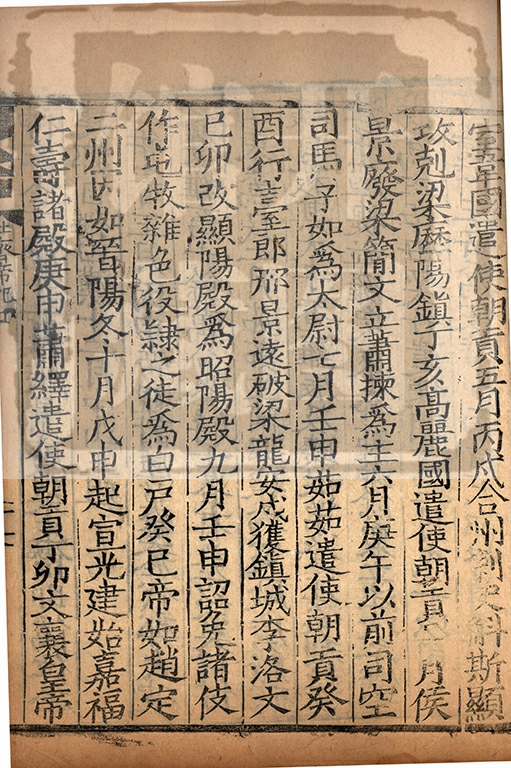 室韋國遣使朝貢五月丙戌合州刺史斛斯顯
攻剋梁歷陽鎮丁亥高麗國遣使朝貢月侯
景廢梁簡文立蕭揀為主六月庚午以前司空
司馬子如為太尉七月壬申茹茹遣使朝貢癸
酉行臺郎邢景遠破梁龍安戍獲鎮城李洛文
巳卯改顯陽殿為昭陽殿九月壬申詔免諸伎
作屯牧雜色役隸之徒為白戶癸巳帝如趙定
二州因如晉陽冬十月戊申起宣光建始嘉福
仁壽諸殿庚申蕭繹遣使朝貢丁卯文襄皇帝